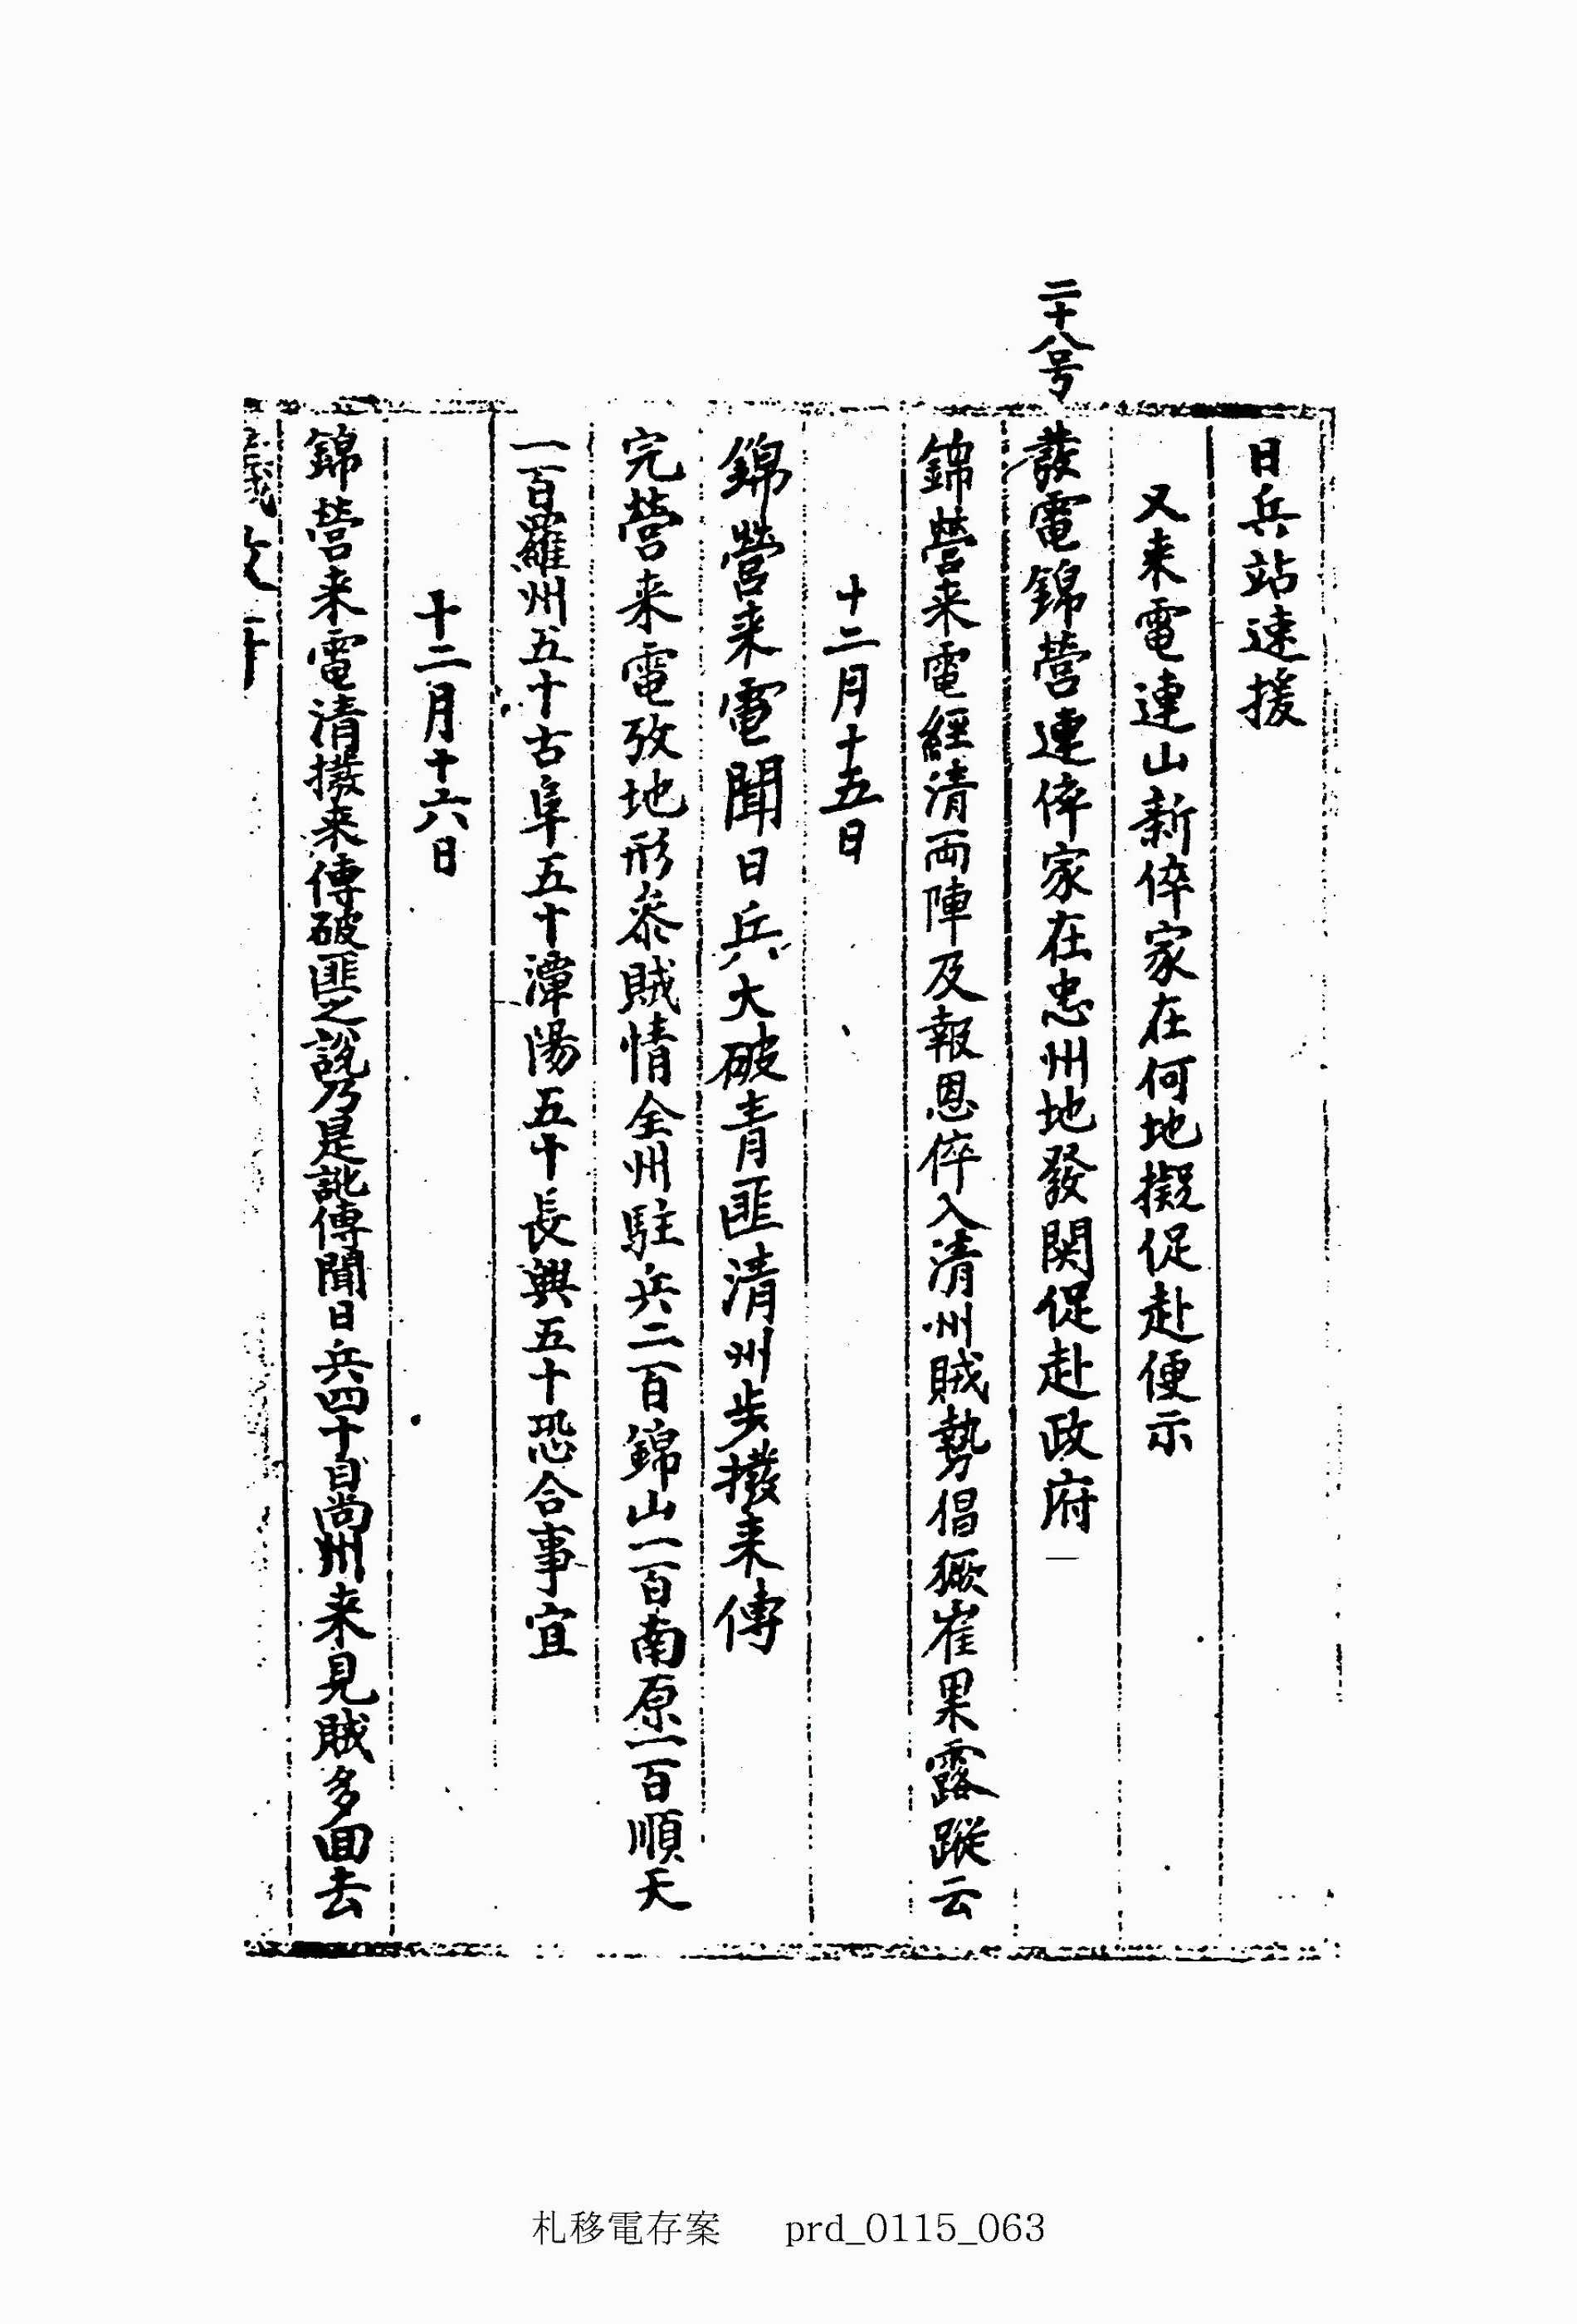 日兵站速援
又来電連山新倅家在何地擬促赴便示
二十八号
發電錦營連倅家在忠州地發関促赴政府
錦營来電經清両陣及報恩倅入清州賊勢倡獗崔果露蹤云
十二月十五日
錦營来電聞日兵大破青匪清州步撥来傳
完營来電攷地形叅賊情全州駐兵二百錦山一百南原一百順天
一百羅州五十古阜五十潭陽五十長興五十恐合事宜
十二月十六日
錦營来電清撥来傳破匪之說乃是訛傳聞日兵四十自尙州来見賊多回去
札移電存案 prd_0115_063